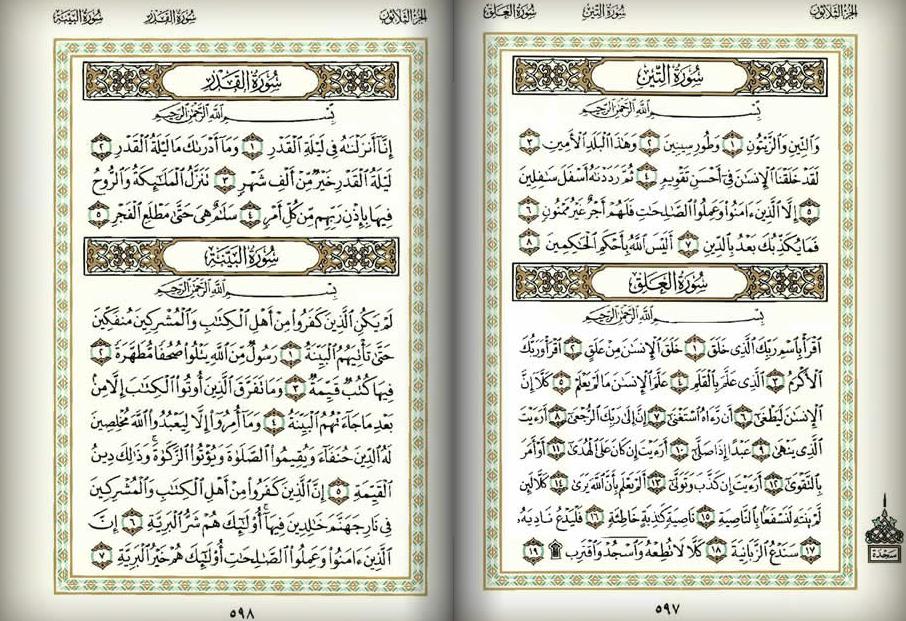 الجزء الثلاثون
سورة التين
سورة العلق
سُورَةُ التِّينِ
بِسْمِ اللَّهِ الرَّحْمَٰنِ الرَّحِيمِ
وَالتِّينِ وَالزَّيْتُونِ ١ وَطُورِ سِينِينَ ٢ وَهَٰذَا الْبَلَدِ الْأَمِينِ ٣
لَقَدْ خَلَقْنَا الْإِنسَٰنَ فِي أَحْسَنِ تَقْوِيمٍ ٤ ثُمَّ رَدَدْنَٰهُ أَسْفَلَ سَٰفِلِينَ
٥ إِلَّا الَّذِينَ ءَامَنُوا وَعَمِلُوا الصَّٰلِحَٰتِ فَلَهُمْ أَجْرٌ غَيْرُ مَمْنُونٍ ٦
فَمَا يُكَذِّبُكَ بَعْدُ بِالدِّينِ ٧ أَلَيْسَ اللَّهُ بِأَحْكَمِ الْحَٰكِمِينَ ٨
سُورَةُ الْعَلَقِ
بِسْمِ اللَّهِ الرَّحْمَٰنِ الرَّحِيمِ
اقْرَأْ بِاسْمِ رَبِّكَ الَّذِي خَلَقَ ١ خَلَقَ الْإِنسَٰنَ مِنْ عَلَقٍ ٢ اقْرَأْ وَرَبُّكَ
الْأَكْرَمُ ٣ الَّذِي عَلَّمَ بِالْقَلَمِ ٤ عَلَّمَ الْإِنسَٰنَ مَا لَمْ يَعْلَمْ ٥ كَلَّا إِنَّ
الْإِنسَٰنَ لَيَطْغَىٰ ٦ أَن رَّءَاهُ اسْتَغْنَىٰ ٧ إِنَّ إِلَىٰ رَبِّكَ الرُّجْعَىٰ ٨ أَرَءَيْتَ
الَّذِي يَنْهَىٰ ٩ عَبْدًا إِذَا صَلَّىٰ ١٠ أَرَءَيْتَ إِن كَانَ عَلَى الْهُدَىٰ ١١ أَوْ أَمَرَ
بِالتَّقْوَىٰ ١٢ أَرَءَيْتَ إِن كَذَّبَ وَتَوَلَّىٰ ١٣ أَلَمْ يَعْلَم بِأَنَّ اللَّهَ يَرَىٰ ١٤ كَلَّا لَئِن
لَّمْ يَنتَهِ لَنَسْفَعًا بِالنَّاصِيَةِ ١٥ نَاصِيَةٍ كَٰذِبَةٍ خَاطِئَةٍ ١٦ فَلْيَدْعُ نَادِيَهُ
١٧ سَنَدْعُ الزَّبَانِيَةَ ١٨ كَلَّا لَا تُطِعْهُ وَاسْجُدْ وَاقْتَرِب ۩ ١٩
سجدة
٥٩٧
الجزء الثلاثون
سورة القدر
سورة البينة
سُورَةُ الْقَدْرِ
بِسْمِ اللَّهِ الرَّحْمَٰنِ الرَّحِيمِ
إِنَّا أَنزَلْنَٰهُ فِي لَيْلَةِ الْقَدْرِ ١ وَمَا أَدْرَىٰكَ مَا لَيْلَةُ الْقَدْرِ ٢
لَيْلَةُ الْقَدْرِ خَيْرٌ مِّنْ أَلْفِ شَهْرٍ ٣ تَنَزَّلُ الْمَلَٰئِكَةُ وَالرُّوحُ
فِيهَا بِإِذْنِ رَبِّهِم مِّن كُلِّ أَمْرٍ ٤ سَلَٰمٌ هِيَ حَتَّىٰ مَطْلَعِ الْفَجْرِ ٥
سُورَةُ الْبَيِّنَةِ
بِسْمِ اللَّهِ الرَّحْمَٰنِ الرَّحِيمِ
لَمْ يَكُنِ الَّذِينَ كَفَرُوا مِنْ أَهْلِ الْكِتَٰبِ وَالْمُشْرِكِينَ مُنفَكِّينَ
حَتَّىٰ تَأْتِيَهُمُ الْبَيِّنَةُ ١ رَسُولٌ مِّنَ اللَّهِ يَتْلُوا صُحُفًا مُّطَهَّرَةً ٢
فِيهَا كُتُبٌ قَيِّمَةٌ ٣ وَمَا تَفَرَّقَ الَّذِينَ أُوتُوا الْكِتَٰبَ إِلَّا مِن
بَعْدِ مَا جَاءَتْهُمُ الْبَيِّنَةُ ٤ وَمَا أُمِرُوا إِلَّا لِيَعْبُدُوا اللَّهَ مُخْلِصِينَ
لَهُ الدِّينَ حُنَفَاءَ وَيُقِيمُوا الصَّلَوٰةَ وَيُؤْتُوا الزَّكَوٰةَ وَذَٰلِكَ دِينُ
الْقَيِّمَةِ ٥ إِنَّ الَّذِينَ كَفَرُوا مِنْ أَهْلِ الْكِتَٰبِ وَالْمُشْرِكِينَ
فِي نَارِ جَهَنَّمَ خَٰلِدِينَ فِيهَا أُولَٰئِكَ هُمْ شَرُّ الْبَرِيَّةِ ٦ إِنَّ
الَّذِينَ ءَامَنُوا وَعَمِلُوا الصَّٰلِحَٰتِ أُولَٰئِكَ هُمْ خَيْرُ الْبَرِيَّةِ ٧
٥٩٨